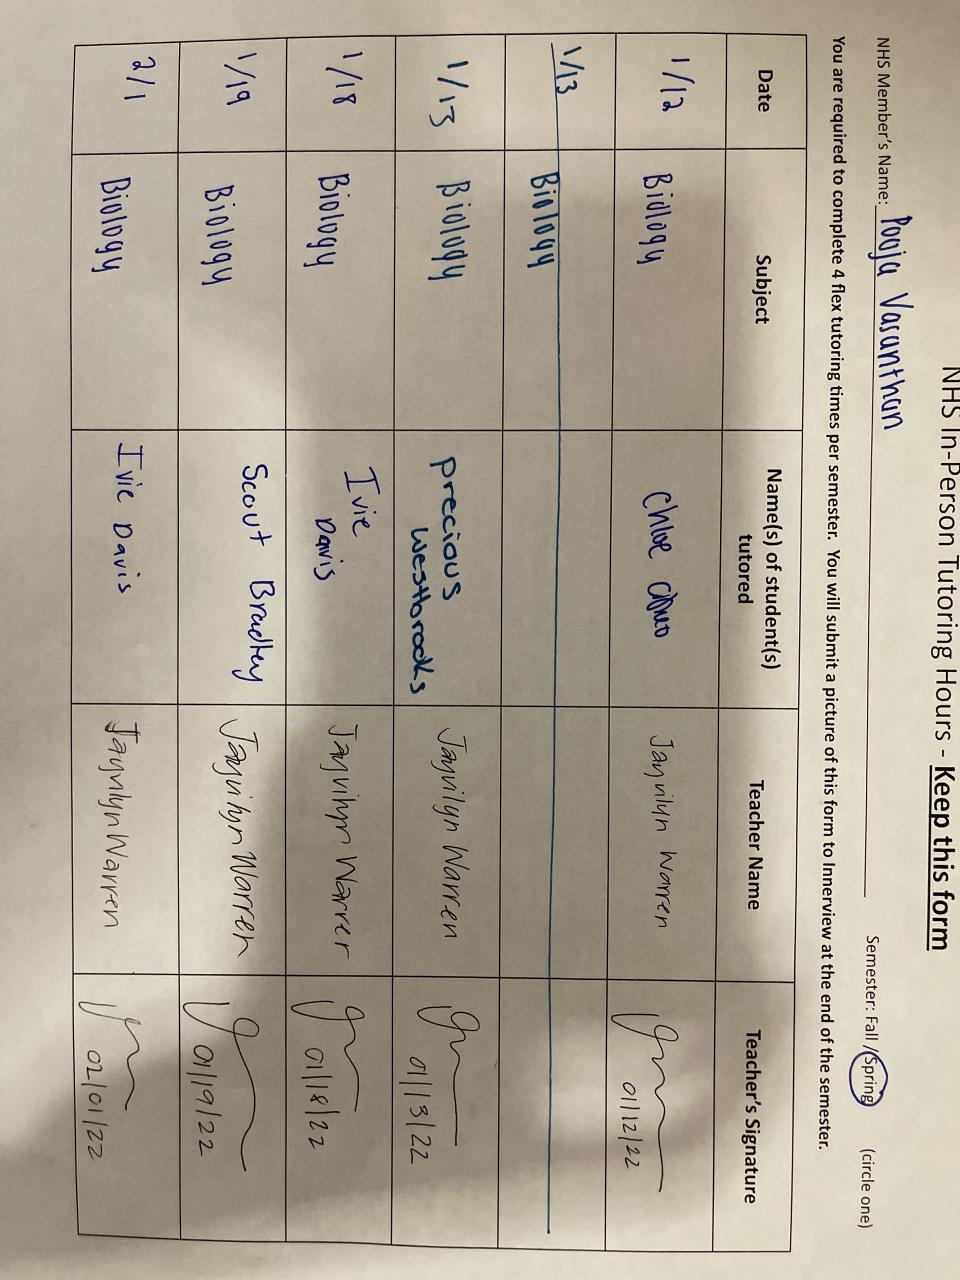 NHS In-Person Tutoring Hours - Keep this form
NHS Member's Name: Pooja Vasanthan Semester: Fall / Spring (circle one)
You are required to complete 4 flex tutoring times per semester. You will submit a picture of this form to Innerview at the end of the semester.
Date Subject Name(s) of student(s) tutored Teacher Name Teacher's Signature
1/12 Biology Chloe Jayvilyn Warren 01/12/22
1/13 Biology
1/13 Biology Precious Westbrooks Jayvilyn Warren 01/13/22
1/18 Biology Ivie Davis Jayvilyn Warren 01/18/22
1/19 Biology Scout Bradley Jayvilyn Warren 01/19/22
2/1 Biology Ivie Davis Jayvilyn Warren 02/01/22